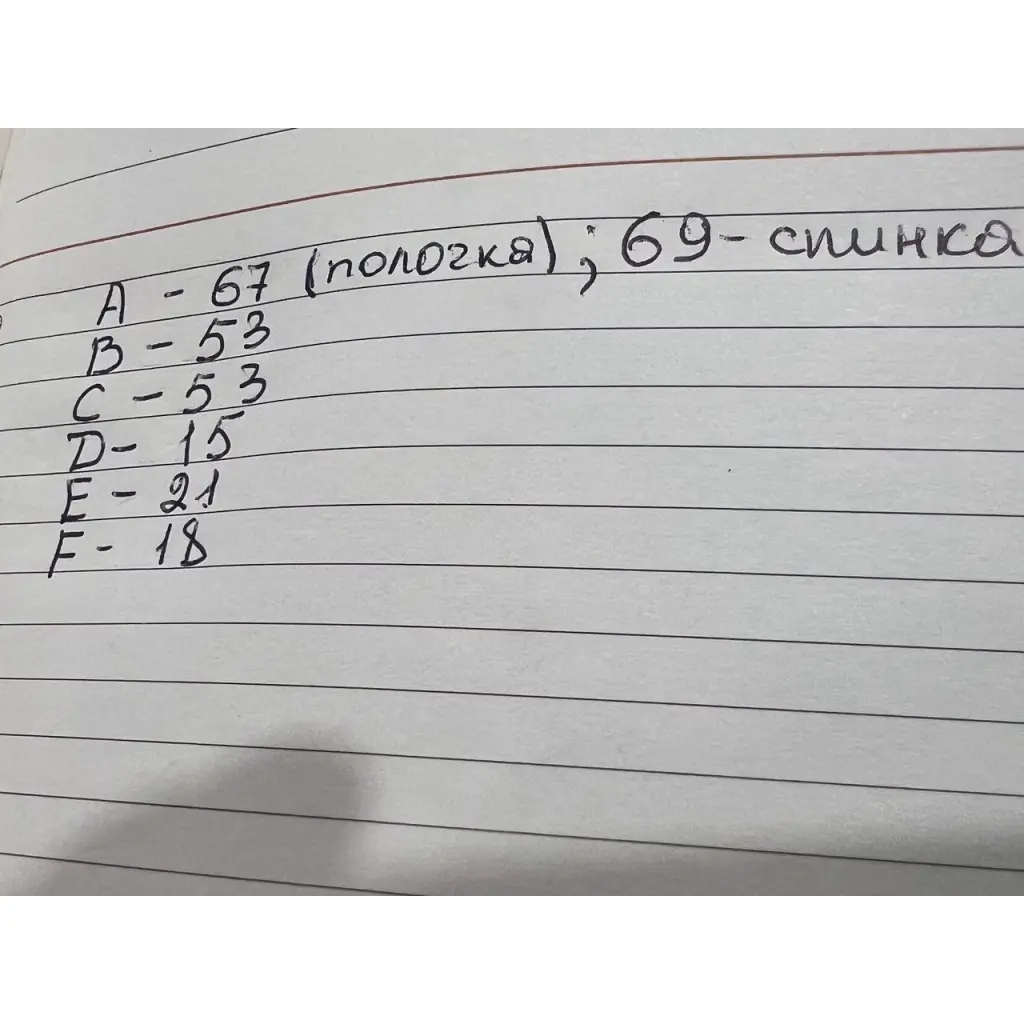 A - 67 (полочка); 69 - спинка
B - 53
C - 53
D - 15
E - 21
F - 18